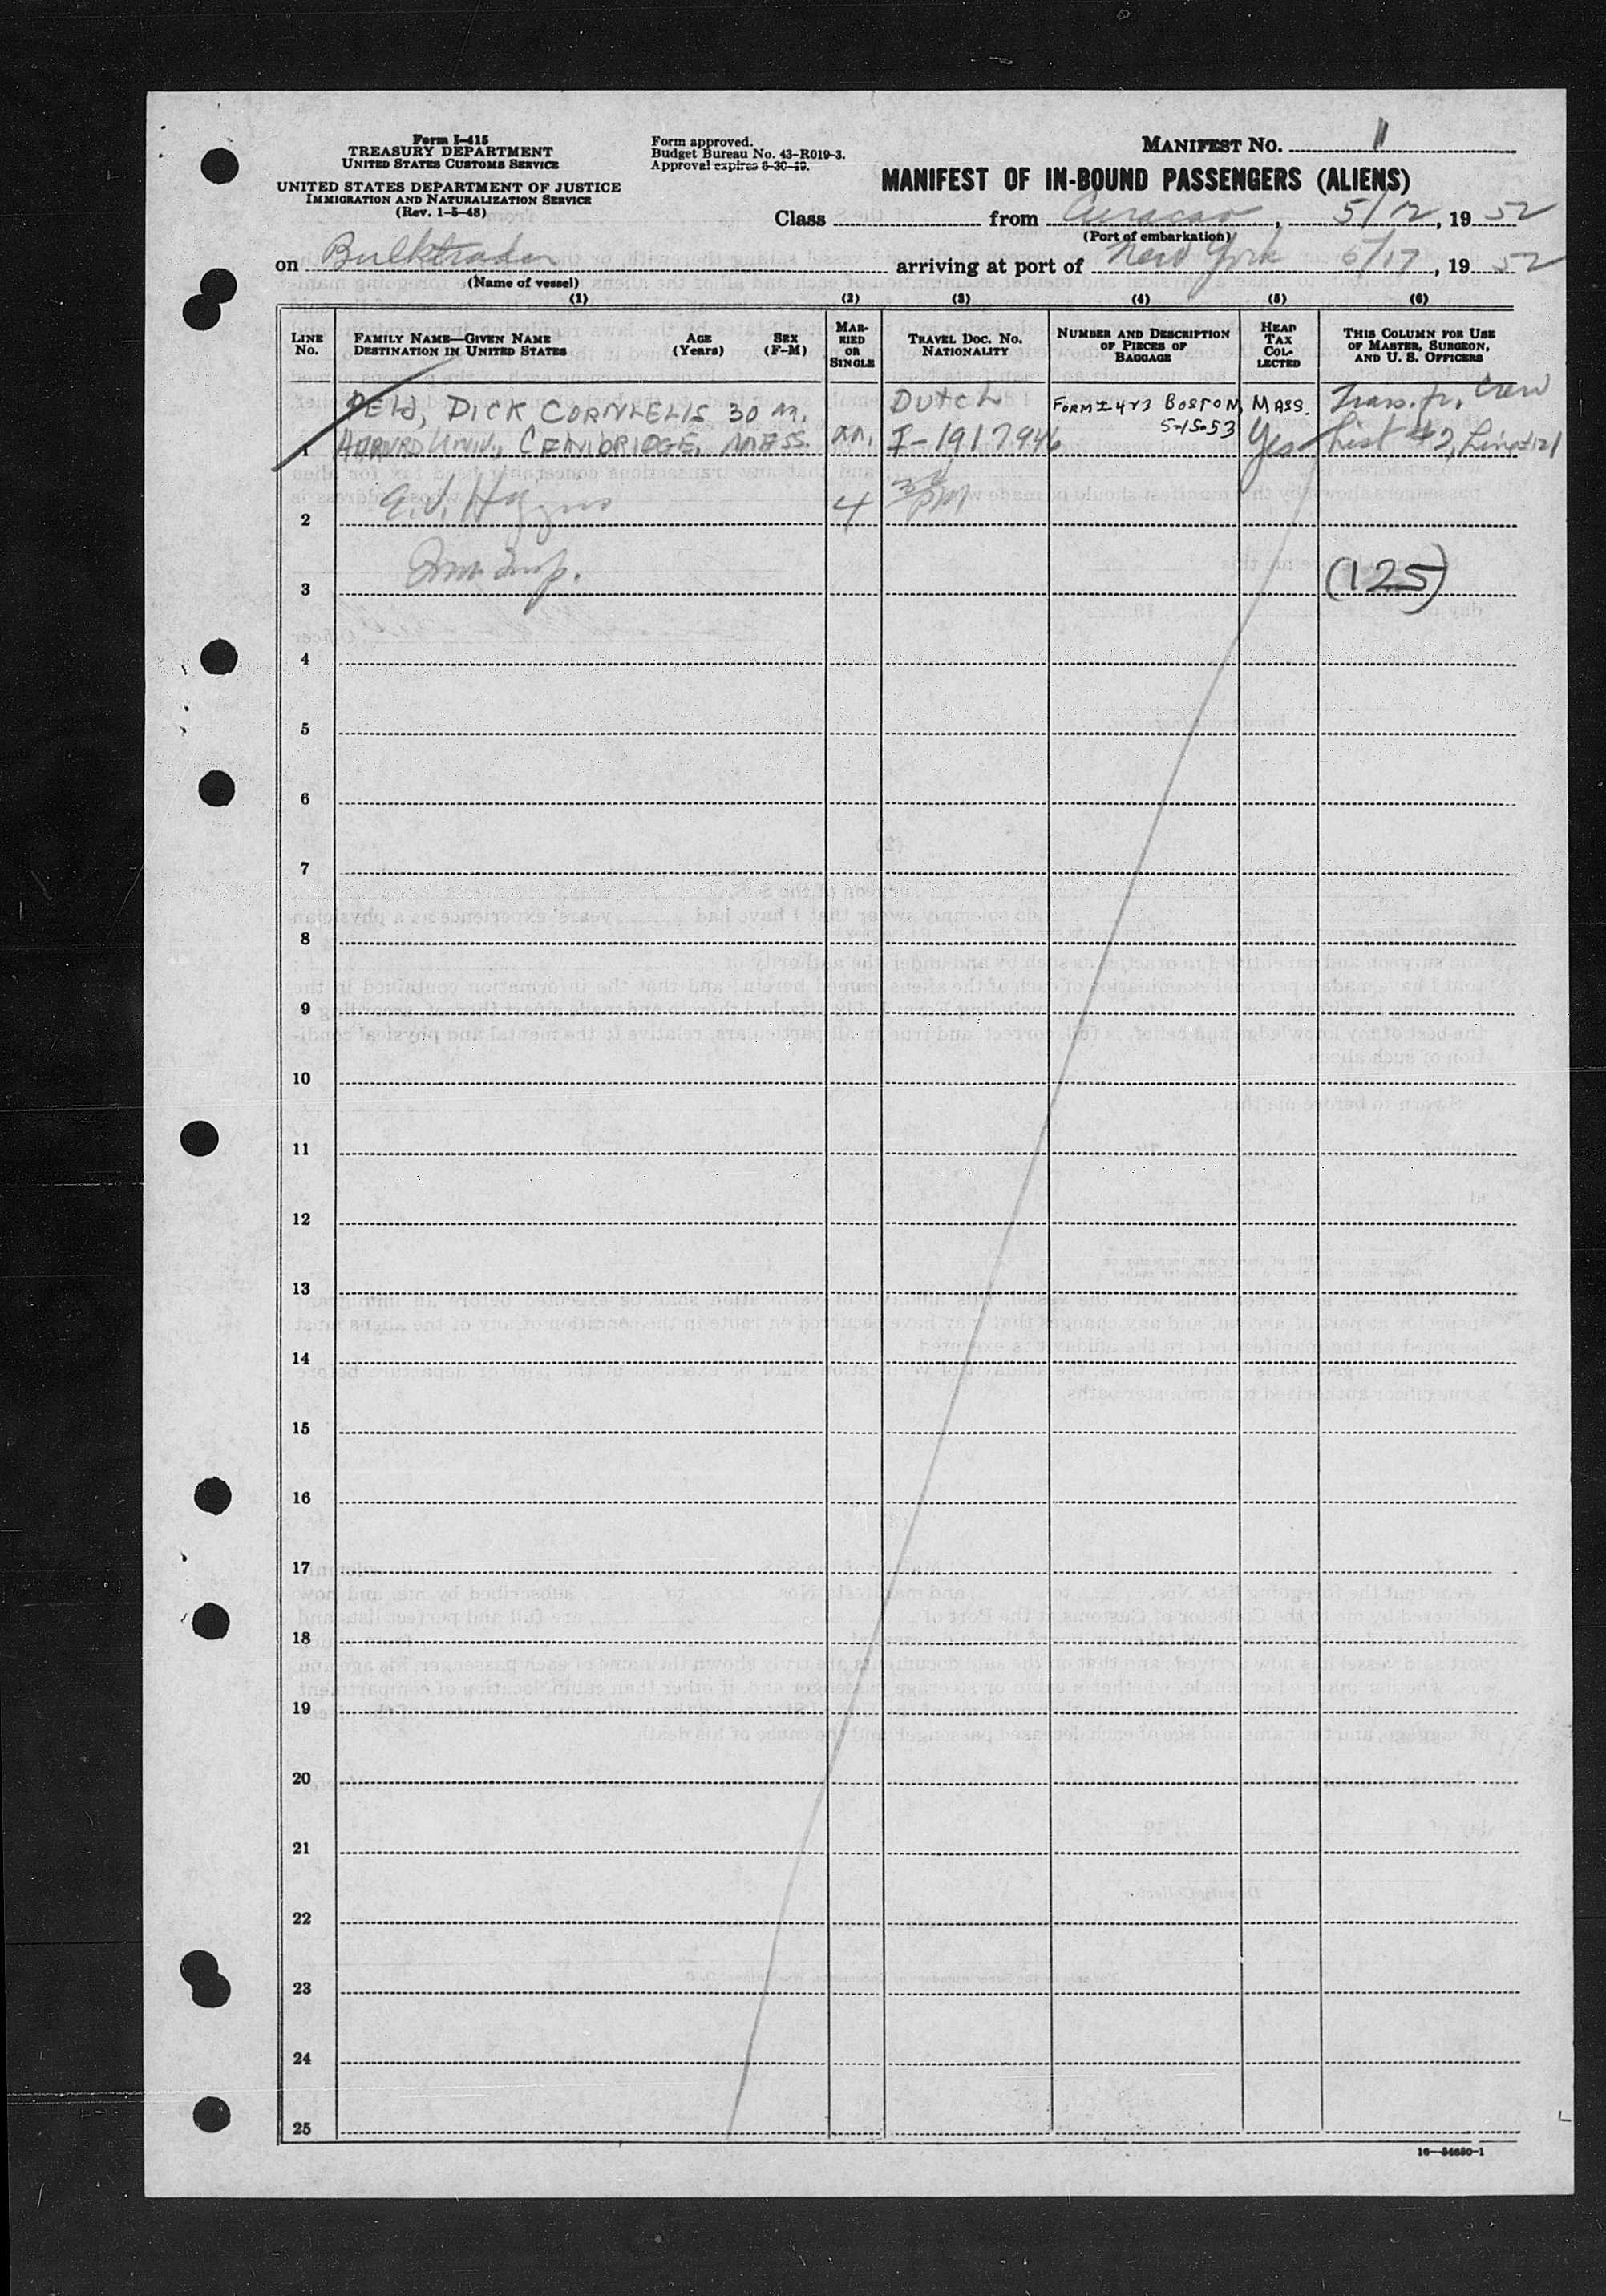 Form I-415
TREASURY DEPARTMENT
UNITED STATES CUSTOMS SERVICE
UNITED STATES DEPARTMENT OF JUSTICE
IMMIGRATION AND NATURALIZATION SERVICE
(Rev. 1-5-48)
Form approved.
Budget Bureau No. 43-R019-3.
Approval expires 6-30-49.
MANIFEST NO. 11
MANIFEST OF IN-BOUND PASSENGERS (ALIENS)
Class from Curacao, 5/12, 19 52
(Port of embarkation)
on Bulktrader arriving at port of New York 5/17, 19 52
(Name of vessel)
(1) (2) (3) (4) (5) (6)
LINE No.
FAMILY NAME—GIVEN NAME
DESTINATION IN UNITED STATES
AGE (Years)
SEX (F-M)
MARRIED OR SINGLE
TRAVEL DOC. NO.
NATIONALITY
NUMBER AND DESCRIPTION OF PIECES OF BAGGAGE
HEAD TAX COLLECTED
THIS COLUMN FOR USE OF MASTER, SURGEON, AND U. S. OFFICERS
DICK CORNLELIS 30 M. DUTCH FORM I 423 BOSTON, MASS. Trans. fr. Crew
1 UNIV., MASS. M. I-1917946 5-15-53 Yes List #2, Line
2 E.J. Higgins 4 PM
3 Imm Insp. (125)
4
5
6
7
8
9
10
11
12
13
14
15
16
17
18
19
20
21
22
23
24
25
16—54650-1